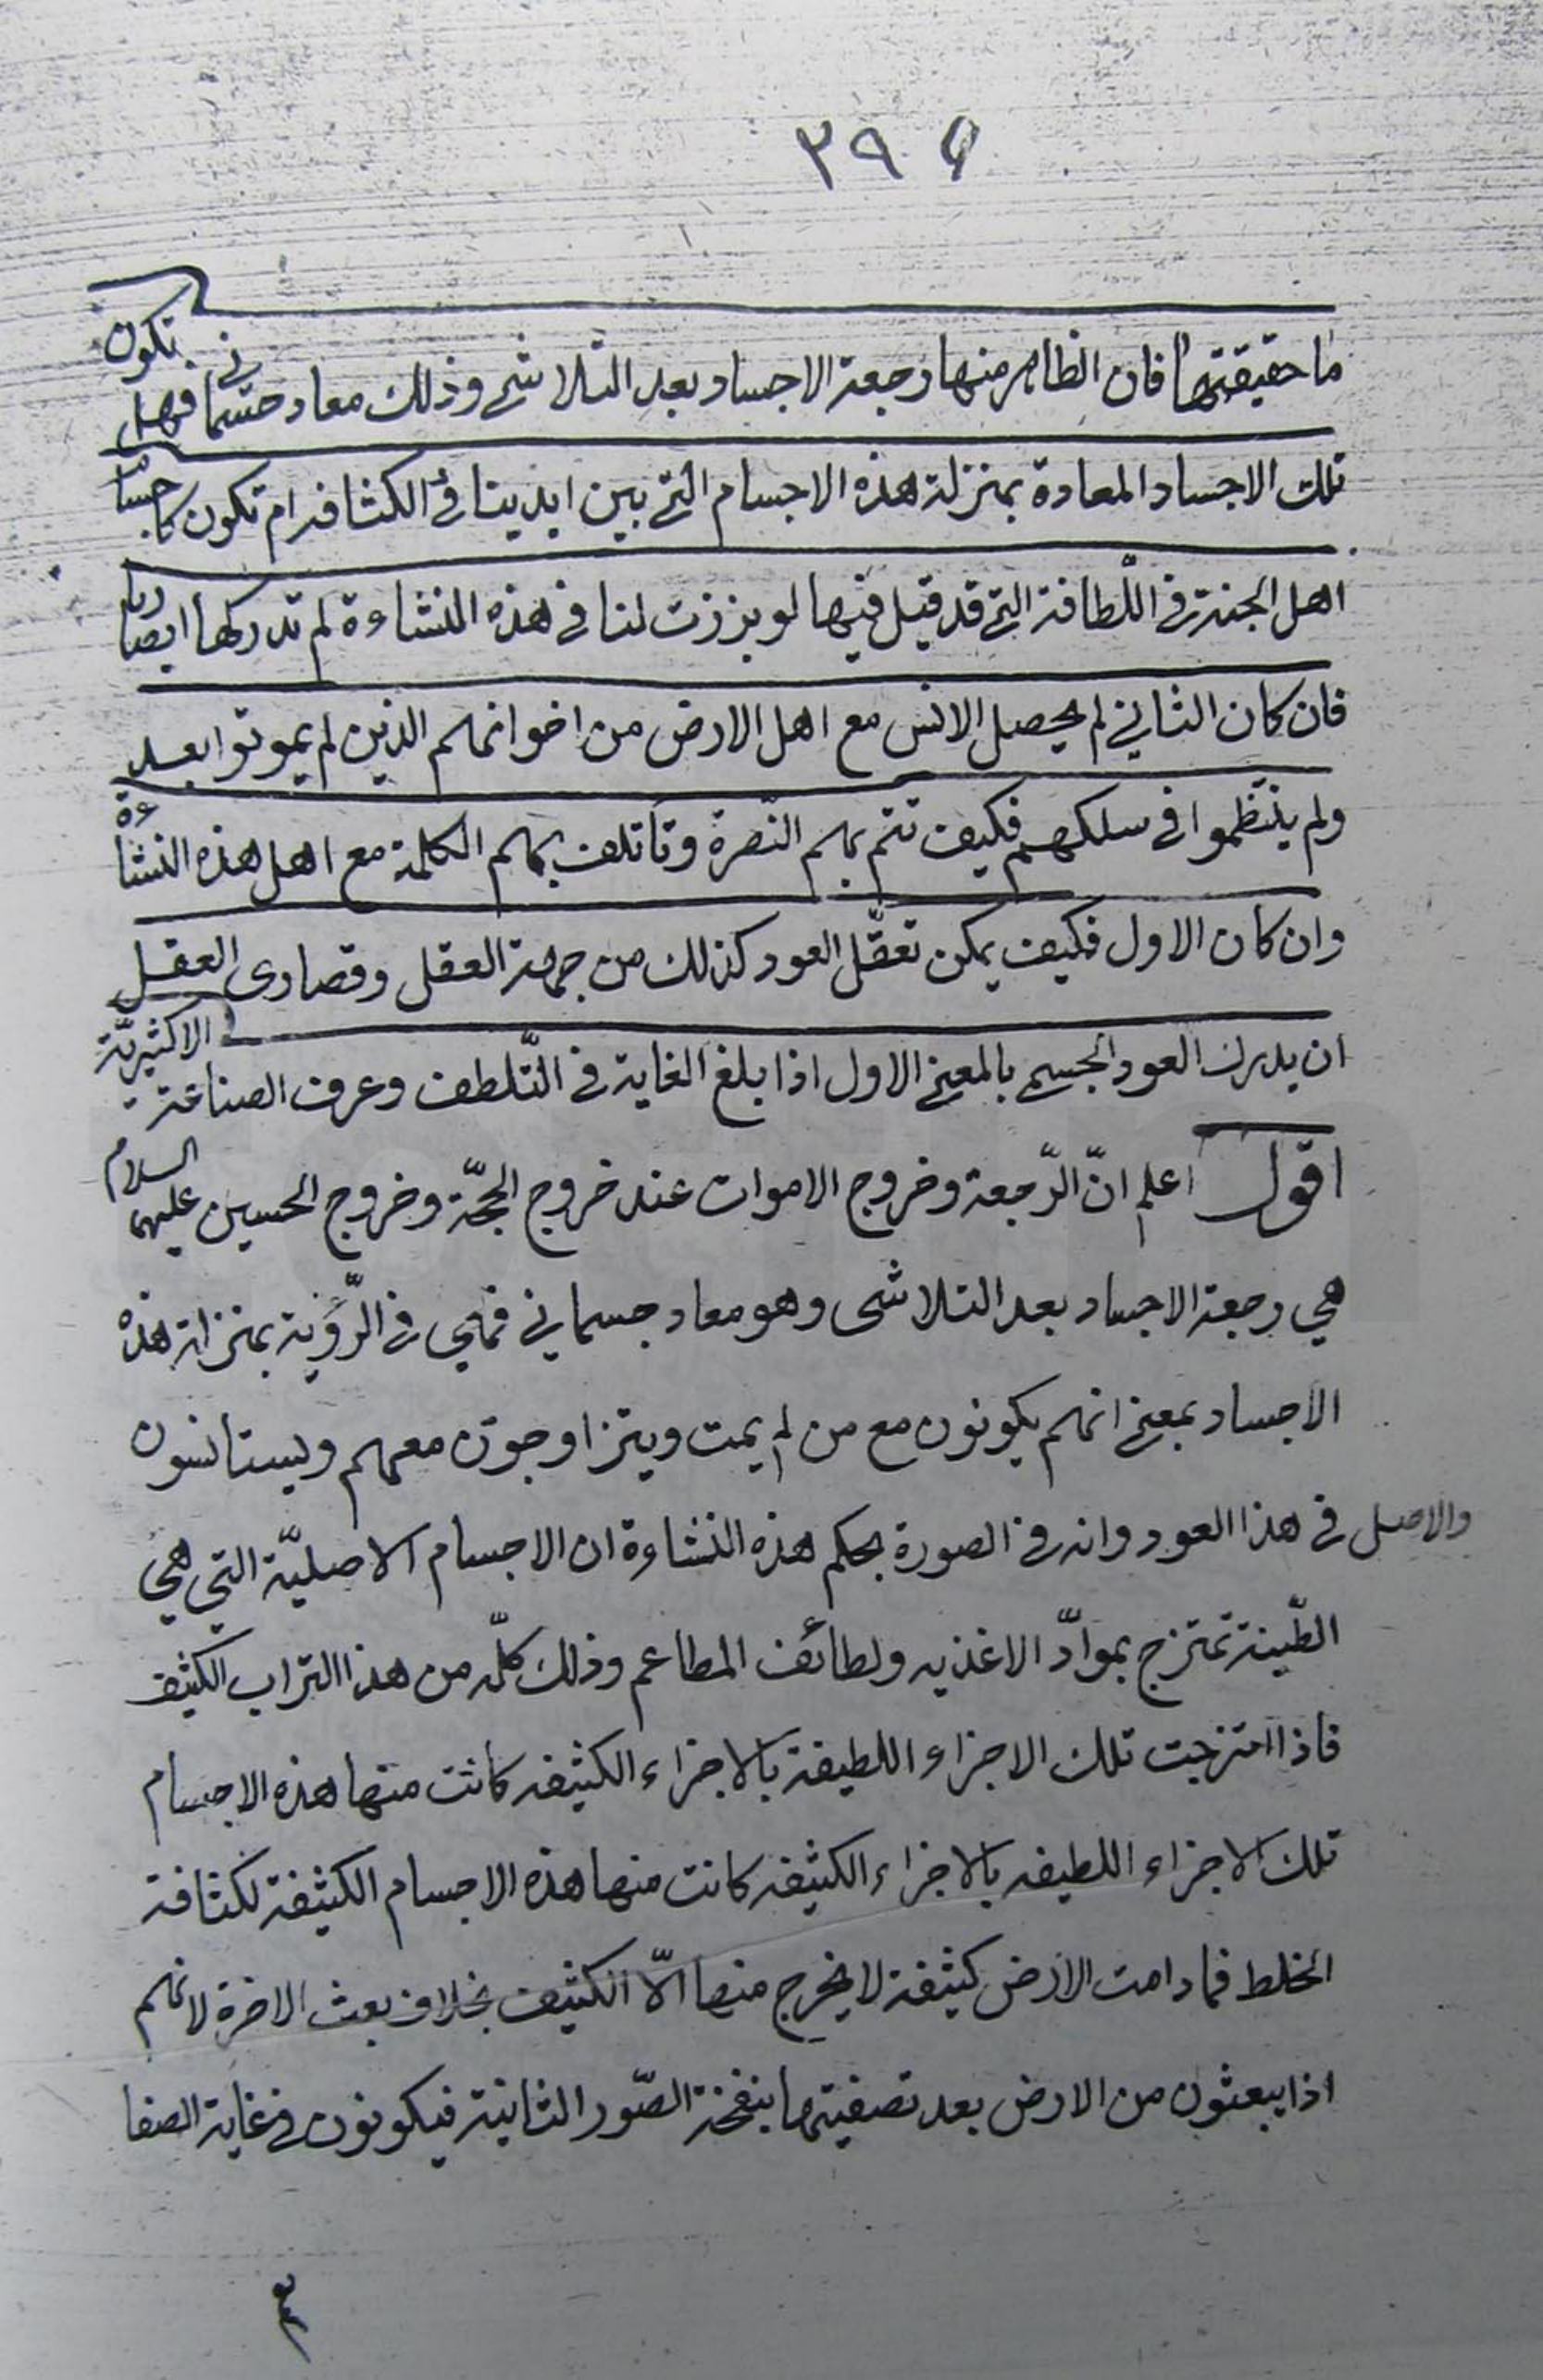 ٣٩٩
ما حقيقتها فان الظاهر منها رجعة الاجساد بعد التلاشي وذلك معاد جسماني فهل تكون
تلك الاجساد المعادة بمنزلة هذه الاجسام التي بين ايدينا في الكثافه ام تكون كاجسام
اهل الجنة في اللّطافة التي قد قيل فيها لو برزت لنا في هذه النشاءة لم تدركها ابصارنا
فان كان الثاني لم يحصل الانس مع اهل الارض من اخوانهم الذين لم يموتوا بعد
ولم ينتظموا في سلكهم فكيف تتم بهم النّصرة وتأتلف بهم الكلمة مع اهل هذه النشاءة
وان كان الاول فكيف يمكن تعقّل العود كذلك من جهة العقل وقصارى العقل
ان يدرك العود الجسم بالمعنى الاول اذا بلغ الغاية في التّلطف وعرف الصناعة الاكثيريّة
اقول اعلم انّ الرّجعة وخروج الاموات عند خروج الحجّة وخروج الحسين عليهما السلام
هي رجعة الاجساد بعد التلاشى وهو معاد جسماني فهي في الرّؤية بمنزلة هذه
الاجساد بمعنى انهم يكونون مع من لم يمت ويتزاوجون معهم ويستانسون
والاصل في هذا العود وانه في الصورة بحكم هذه النشاءة ان الاجسام الاصليّة التي هي
الطّينة تمتزج بموادّ الاغذيه ولطائف المطاعم وذلك كلّه من هذا التراب الكثيف
فاذا امتزجت تلك الاجزاء اللطيفة بالاجزاء الكثيفه كانت منها هذه الاجسام
تلك الاجزاء اللطيفه بالاجزاء الكثيفه كانت منها هذه الاجسام الكثيفة لكثافة
الخلط فما دامت الارض كثيفة لا يخرج منها الّا الكثيف بخلاف بعث الاخرة لانهم
اذا يبعثون من الارض بعد تصفيتها بنفخة الصّور الثانية فيكونون في غاية الصفا